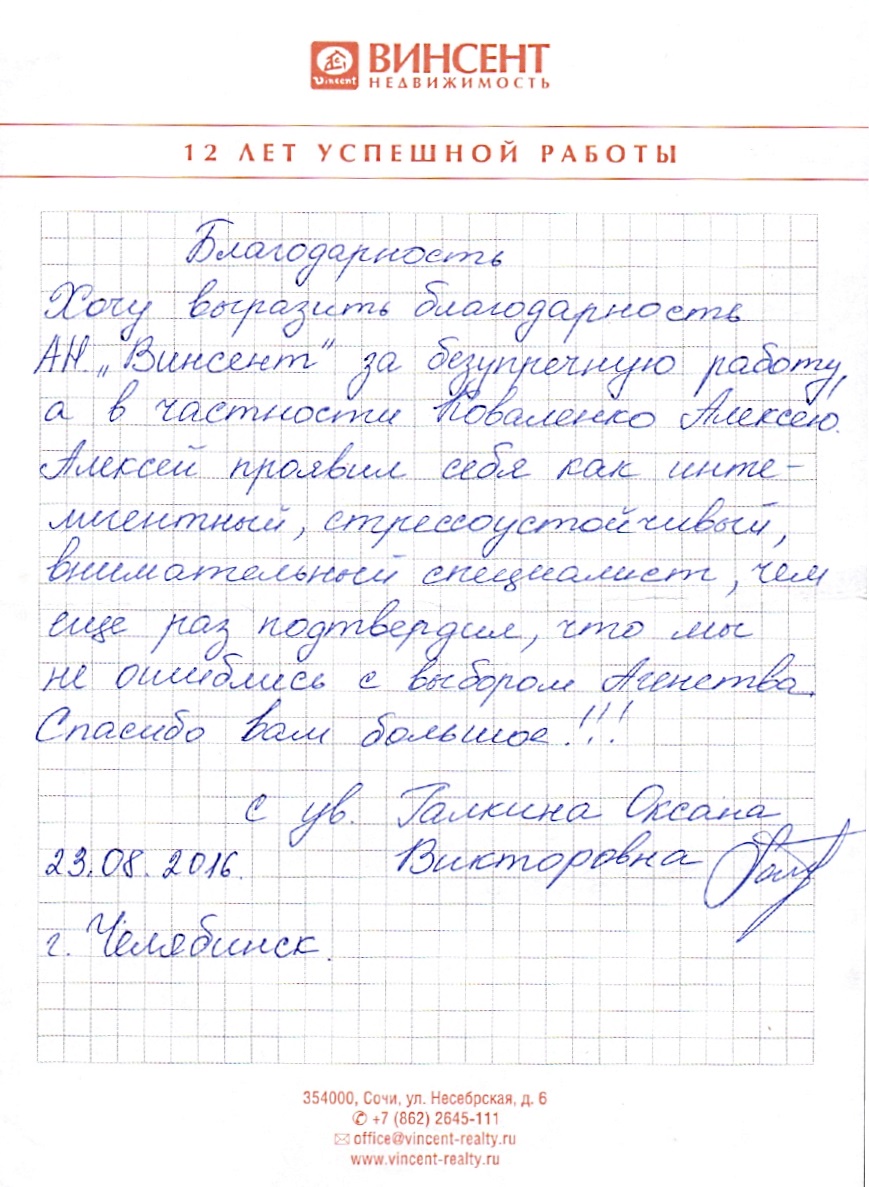 Vincent
ВИНСЕНТ
НЕДВИЖИМОСТЬ
12 ЛЕТ УСПЕШНОЙ РАБОТЫ
Благодарность
Хочу выразить благодарность
АН „Винсент“ за безупречную работу,
а в частности Коваленко Алексею.
Алексей проявил себя как инте-
лигентный, стрессоустойчивый,
внимательный специалист, чем
еще раз подтвердил, что мы
не ошиблись с выбором Агенства.
Спасибо вам большое!!!
с ув. Галкина Оксана
Викторовна
23.08.2016.
г. Челябинск.
354000, Сочи, ул. Несебрская, д. 6
✆ +7 (862) 2645-111
✉ office@vincent-realty.ru
www.vincent-realty.ru